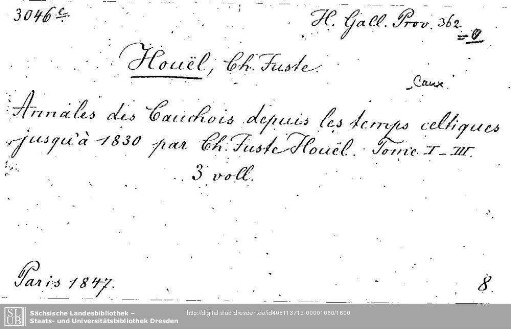 3046 c. H. Gall. Prov. 362
= 0
Houël, Ch. Juste.
Caux
Annales des Cauchois depuis les temps celtiques
jusqu'à 1830 par Ch. Juste Houël. Tome I-III.
3 voll.
Paris 1847. 8.
Sächsische Landesbibliothek –
Staats- und Universitätsbibliothek Dresden